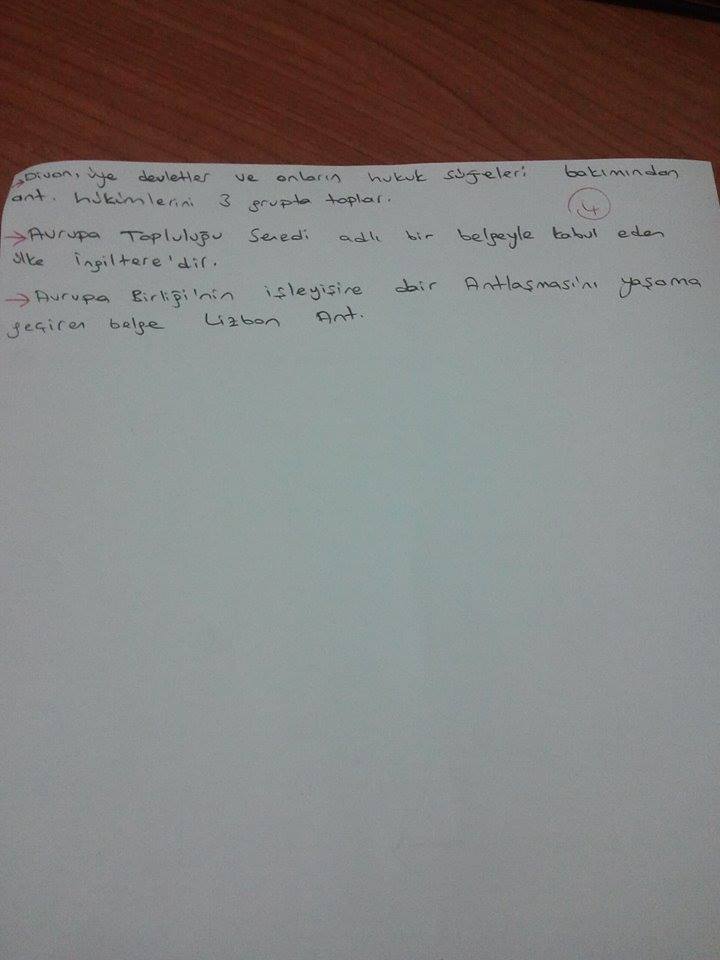 → Divan, üye devletler ve onların hukuk süjeleri bakımından
ant. hükümlerini 3 grupta toplar.
4
→ Avrupa Topluluğu Senedi adlı bir belgeyle kabul eden
ülke İngiltere'dir.
→ Avrupa Birliği'nin işleyişine dair Antlaşması'nı yaşama
geçiren belge Lizbon Ant.